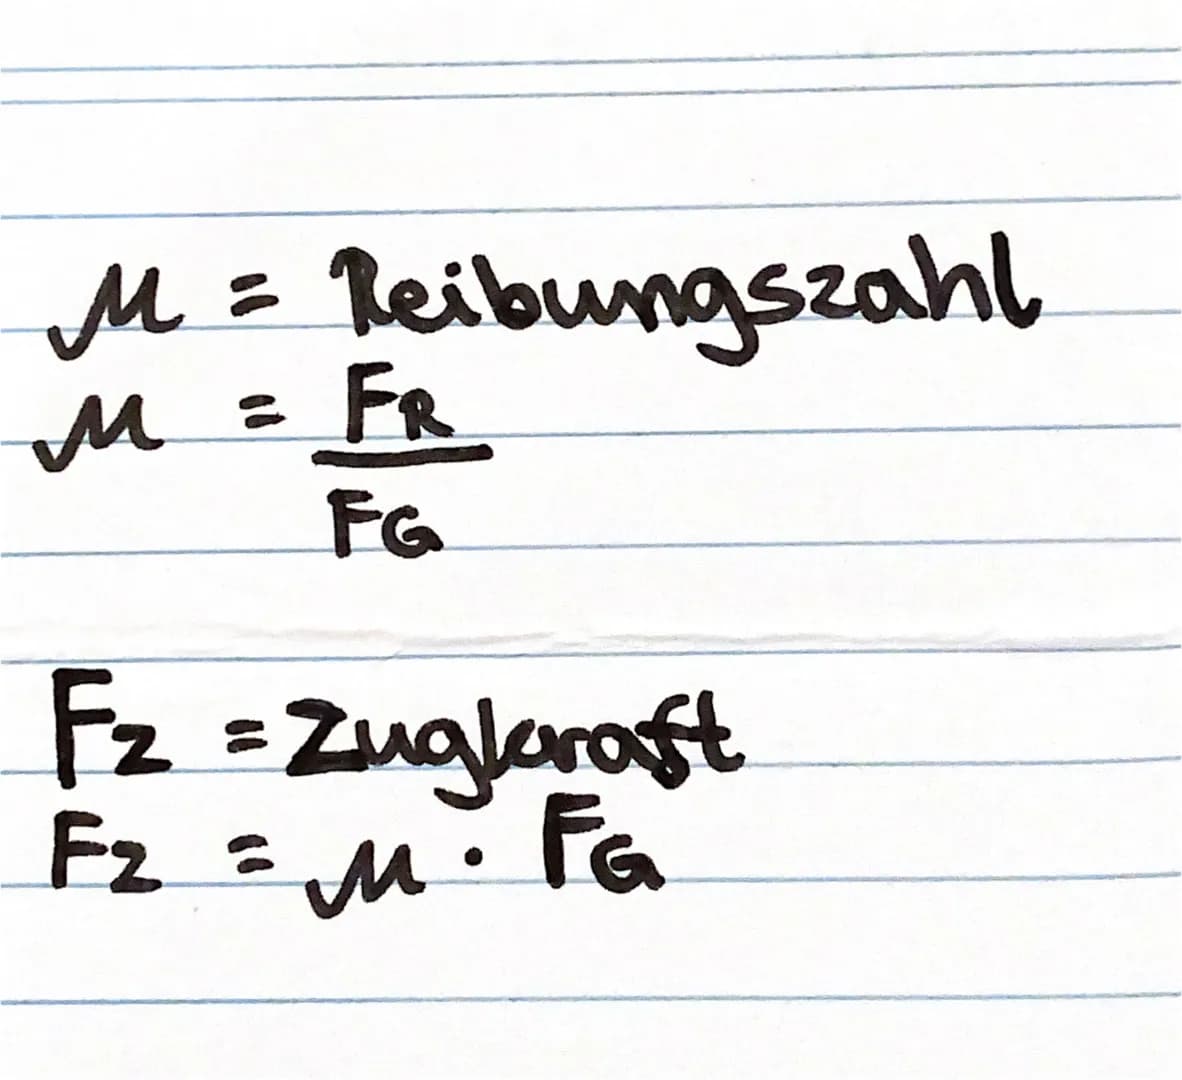 μ = Reibungszahl
μ = FR
FG
Fz = Zugkraft
Fz = μ · FG